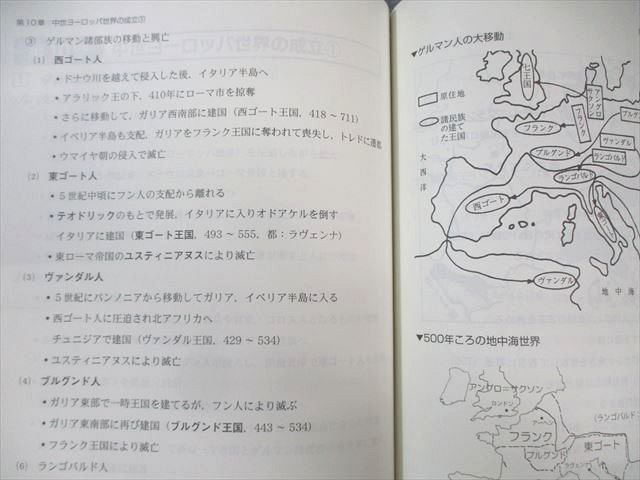 第10章 中世ヨーロッパ世界の成立①
③ ゲルマン諸部族の移動と興亡
(1) 西ゴート人
・ドナウ川を越えて侵入した後，イタリア半島へ
・アラリック王の下，410年にローマ市を掠奪
・さらに移動して，ガリア西南部に建国（西ゴート王国，418～711）
・イベリア半島も支配，ガリアをフランク王国に奪われて喪失し，トレドに遷都
・ウマイヤ朝の侵入で滅亡
(2) 東ゴート人
・5世紀中頃にフン人の支配から離れる
・テオドリックのもとで発展，イタリアに入りオドアケルを倒す
イタリアに建国（東ゴート王国，493～555，都：ラヴェンナ）
・東ローマ帝国のユスティニアヌスにより滅亡
(3) ヴァンダル人
・5世紀にパンノニアから移動してガリア，イベリア半島に入る
・西ゴート人に圧迫され北アフリカへ
チュニジアで建国（ヴァンダル王国，429～534）
・ユスティニアヌスにより滅亡
(4) ブルグンド人
・ガリア東部で一時王国を建てるが，フン人により滅ぶ
・ガリア東南部に再び建国（ブルグンド王国，443～534）
・フランク王国により滅亡
(6) ランゴバルド人
▼ゲルマン人の大移動
原住地
諸民族の建てた王国
七王国
アングロサクソン
フランク
フランク
ブルグンド
ヴァンダル
ブルグンド
ランゴバルド
ランゴバルド
大西洋
西ゴート
ヴァンダル
地中海
▼500年ころの地中海世界
アングローサクソン
ロンドン
フランク
ブルグンド
東ゴート
(ランゴバル